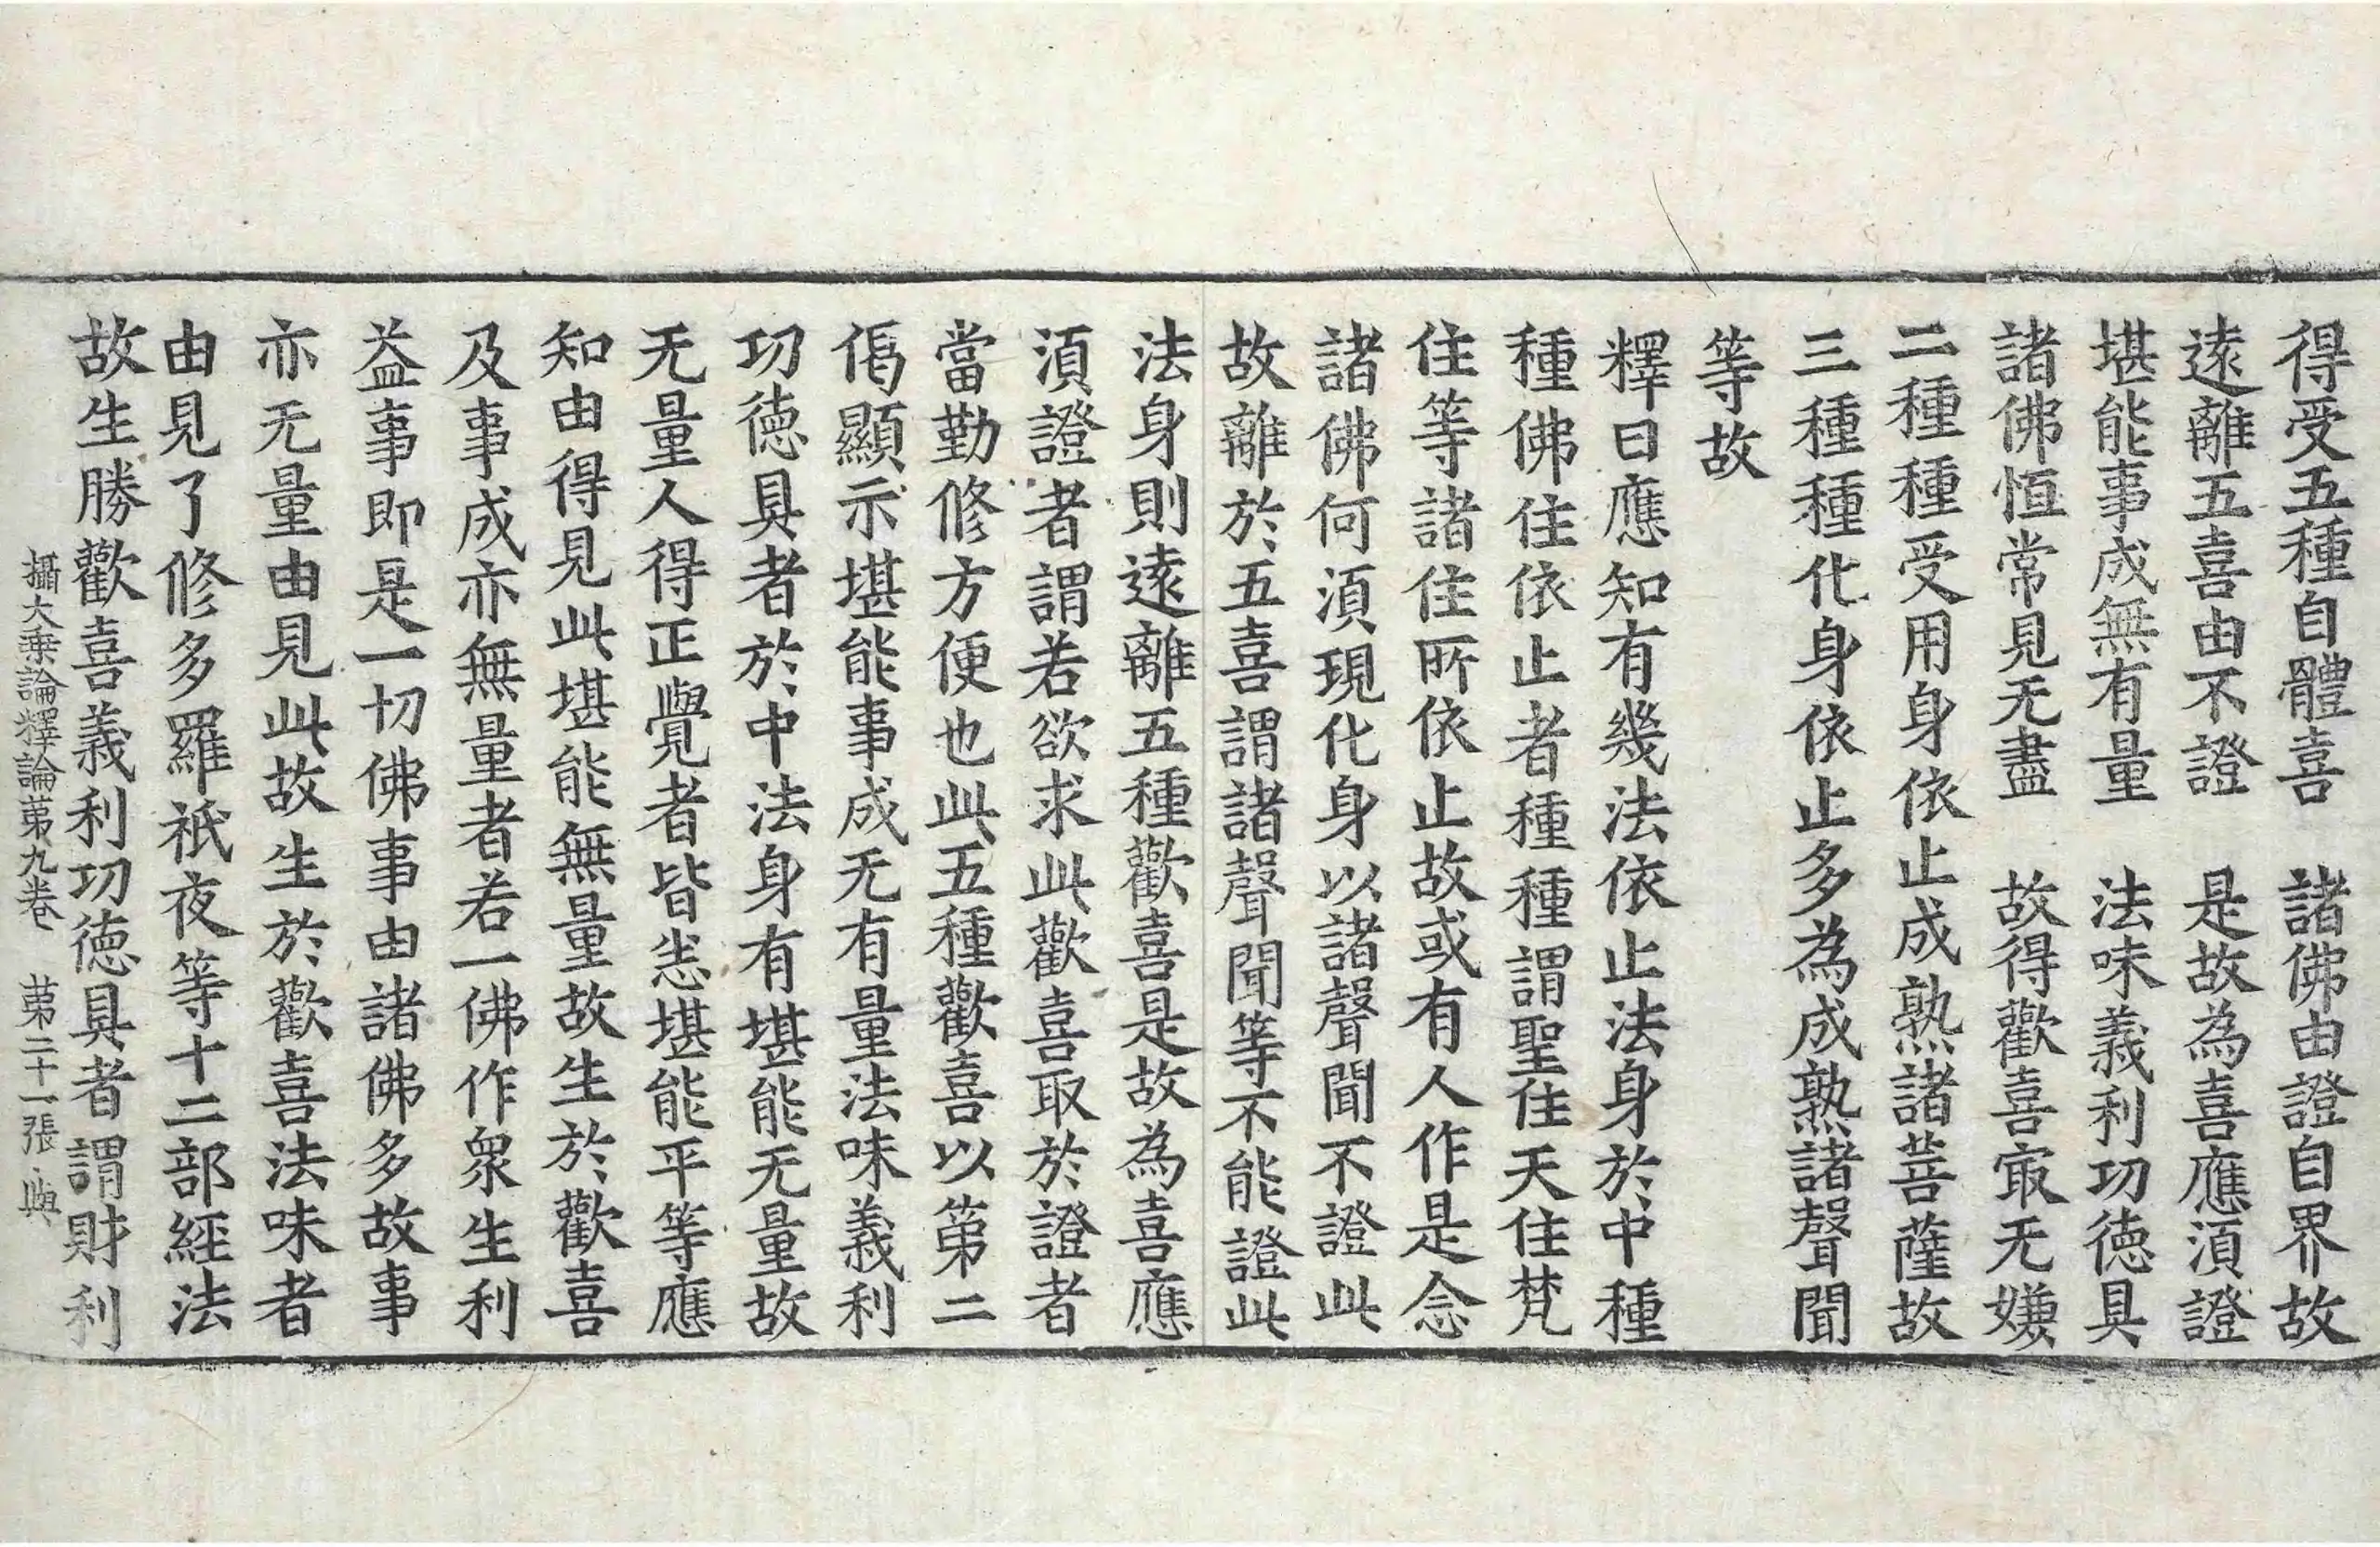 得受五種自體喜　諸佛由證自界故
遠離五喜由不證　是故為喜應湏證
堪能事成無有量　法味義利功德具
諸佛恒常見无盡　故得歡喜㝡无嫌
二種種受用身依止成熟諸菩薩故
三種種化身依止多為成熟諸聲聞
等故
釋曰應知有幾法依止法身於中種
種佛住依止者種種謂聖住天住梵
住等諸住所依止故或有人作是念
諸佛何湏現化身以諸聲聞不證此
故離於五喜謂諸聲聞等不能證此
法身則遠離五種歡喜是故為喜應
湏證者謂若欲求此歡喜取於證者
當勤修方便也此五種歡喜以第二
偈顯示堪能事成无有量法味義利
功德具者於中法身有堪能无量故
无量人得正覺者皆悉堪能平等應
知由得見此堪能無量故生於歡喜
及事成亦無量者若一佛作衆生利
益事即是一切佛事由諸佛多故事
亦无量由見此故生於歡喜法味者
由見了修多羅祇夜等十二部經法
故生勝歡喜義利功德具者謂財利
攝大乗論釋論苐九卷　苐二十一張　與